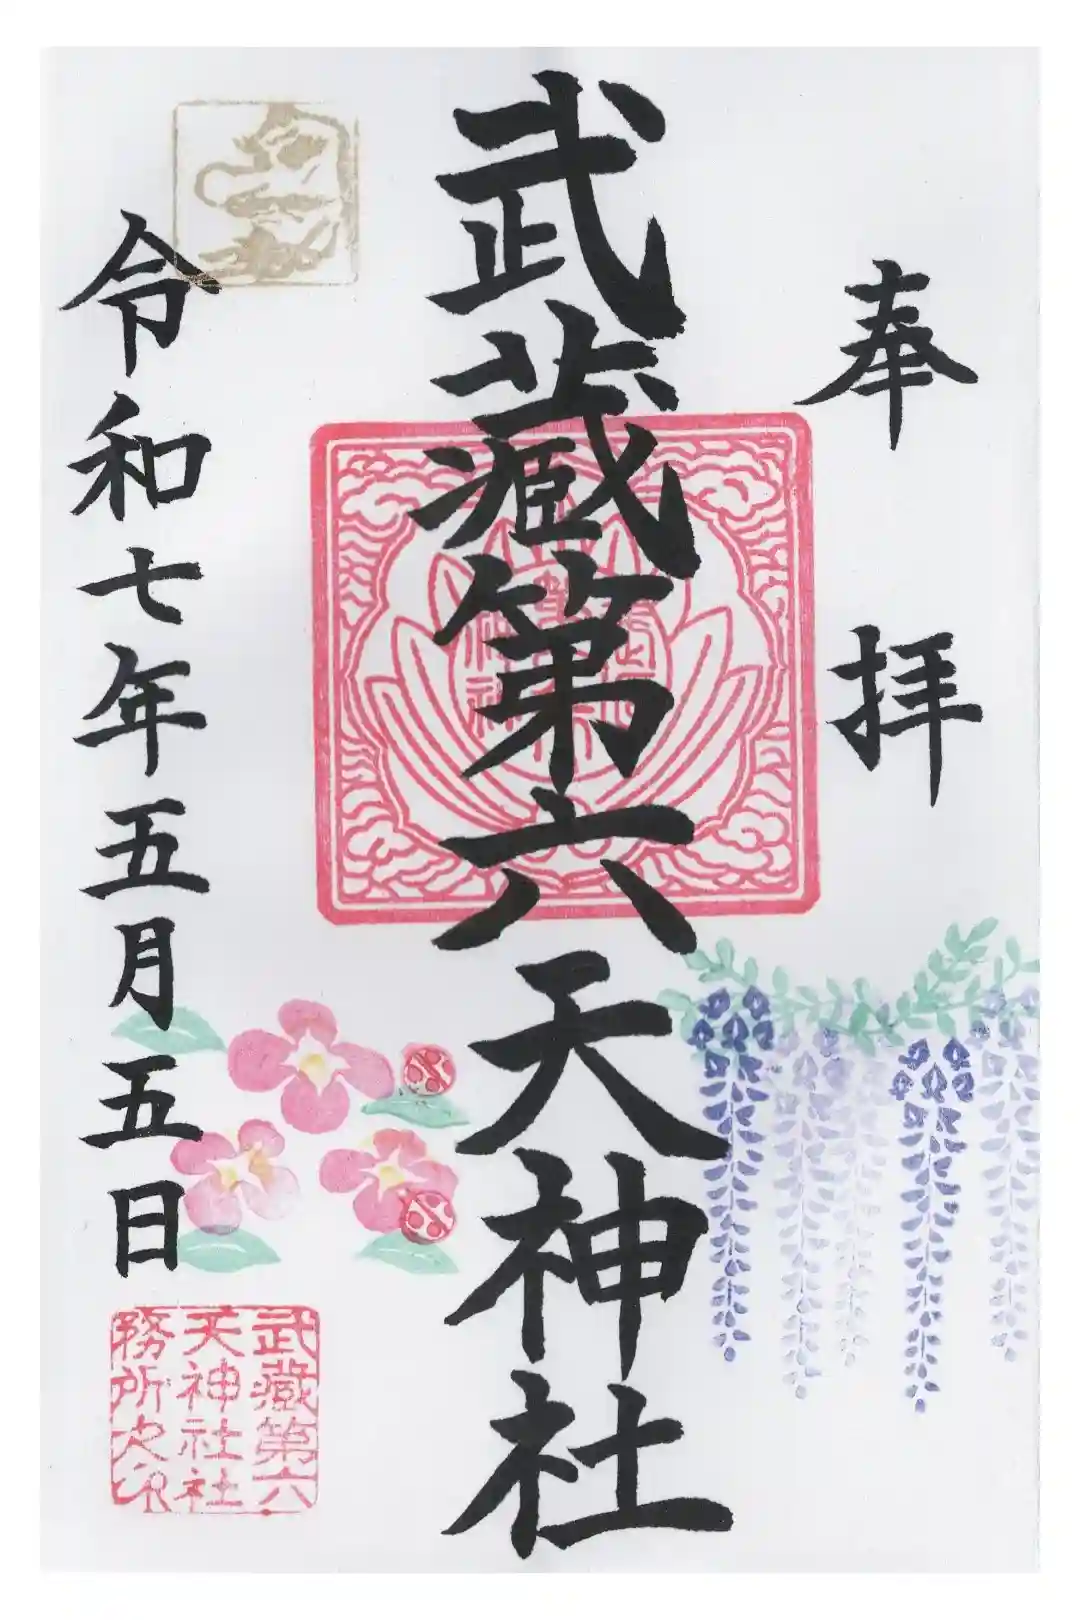 奉拝
武藏第六天神社
令和七年五月五日
武藏第六
天神社社
務所之印